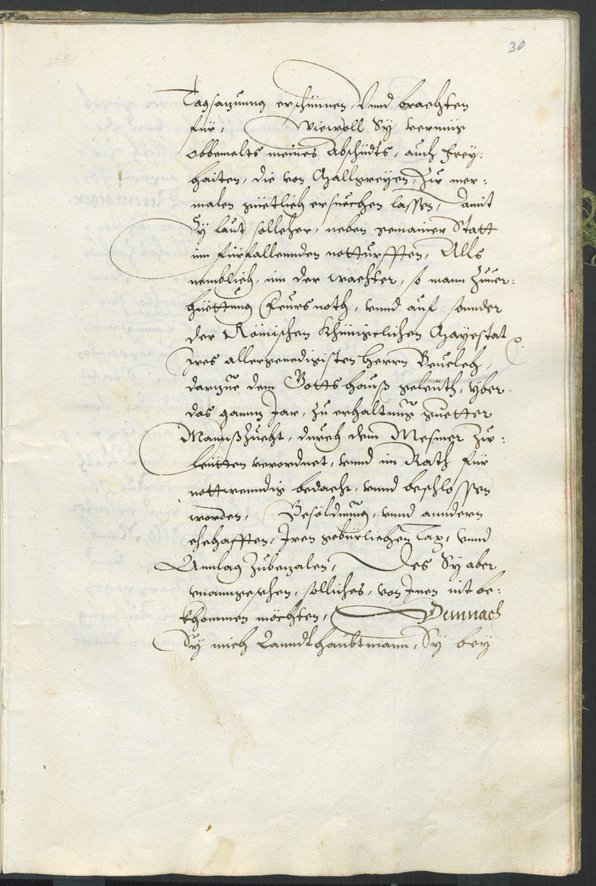 30
Tagsatzung erschinnen, vnnd brachten
für, Wiewoll Sy vermüg
obbemelts meines Abschidts, auch frey-
haiten, die von Gallsreyen, zu mer-
malen güetlich ersuechen lassen, damit
Sy laut sollicher, neben gemainer Statt
im fürfallennden notturfften, Alls
nemblich, im der wachter, so man zuuer-
hüettung Feursnoth, vnnd auf sonder
der Römischen Khünigclichen Mayestat
Ires allergenedigisten herrn Beuelch,
darzue dem Gottshauß geleüth, vber
das gannz Jar, zu erhaltung guetter
Mannßzucht, durch dem Mesner zu-
leütten verordnet, vnnd in Rath für
nottwenndig bedacht, vnnd beschlossen
worden, Besoldung, vnnd anndern
ehehafften, Iren gebürlichen Tax, vnnd
Annlag zubezalen, Des Sy aber
vnangesehen, solliches, von Inen nit be-
khommen möchten, Demnach
Sy mich Lanndtshaubtmann, Sy bey